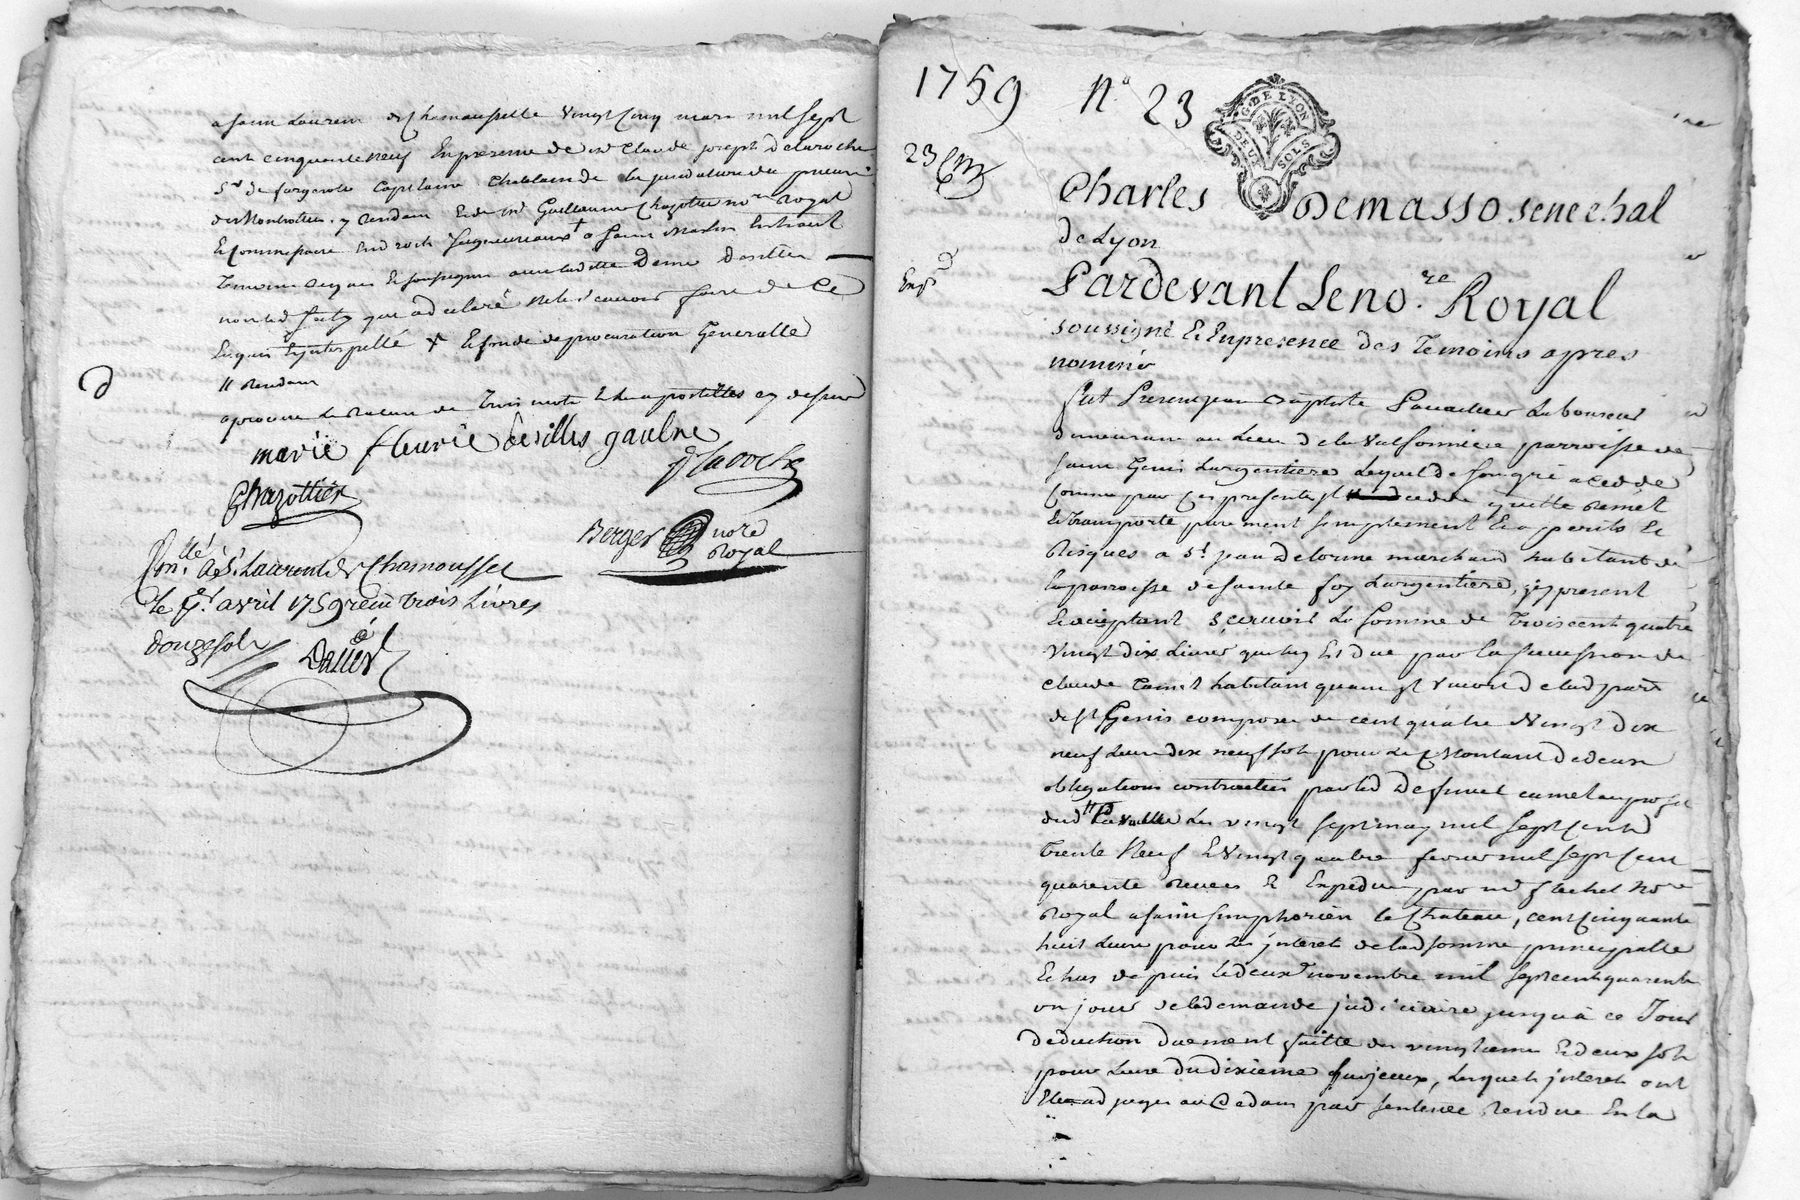 a saint Laurent de Chamoussette vingt cinq mars mil sept
cent cinquante neuf En presence de md Claude joseph Delaroche
Sr de fargerole Capitaine Chatelain de la juridiction du prieuré
de Montrotier, y Rendant & de md Guillaume Chazottier nore Royal
& Commissaire En droits seigneuriaux a saint Martin
Temoins requis & soussignés avec ladite Dame
non led. qui a declaré ne le scavoir faire de ce
Enquis & interpellé & fondé de procuration Generalle
// Rendant
aprouvé la Rature de Trois mots & les apostilles cy dessus
marie fleurie desilles gaulne
Delaroche
Chazottier
Berger nore
Royal
Conllé à St Laurent de Chamousset
le avril 1759 reçu trois Livres
douze sols
1759 No 23
G. DE LYON
DEUX SOLS
23
Charles Demasso senechal
de Lyon
Pardevant Le no.re Royal
Expd
soussigné & En presence des Temoins apres
nommés
fut Present jean Baptiste Laboureur
demeurant au Lieu de la Valsonniere parroisse de
saint Genis Largentiere Lequel de son gré a cedé
Comme par Ces presentes il cede quitte remet
& transporte purement simplement & a perils &
Risques a Sr jean Delorme marchand habitant de
la parroisse de sainte foy Largentiere, icy present
& acceptant scavoir La somme de Trois cent quatre
vingt dix Livres qui luy Est due par la succession de
claude Camet habitant quand il vivoit de lad. parr
de St Genis composée de cent quatre vingt dix
neuf Livres dix neuf sols pour Le Montant de deux
obligations contractées par led. Defunct camet au profit
dud. Les vingt sept may mil sept cent
trente Neuf & vingt quatre fevrier mil sept cent
quarente Receues & Expediées par md flachet Nore
Royal a saint simphorien le Chateau, cent cinquante
huit Livres pour Les jnterets de lad. somme principalle
Echus depuis Le deux novembre mil sept cent quarente
un jour de la demande judiciaire jusqu'à ce Jour
déduction duement faitte des vingtiemes & deux sols
pour Livre du dixieme d'iceux, Lesquels jnterets ont
Eté adjugés au Cedant par sentence Rendue En la